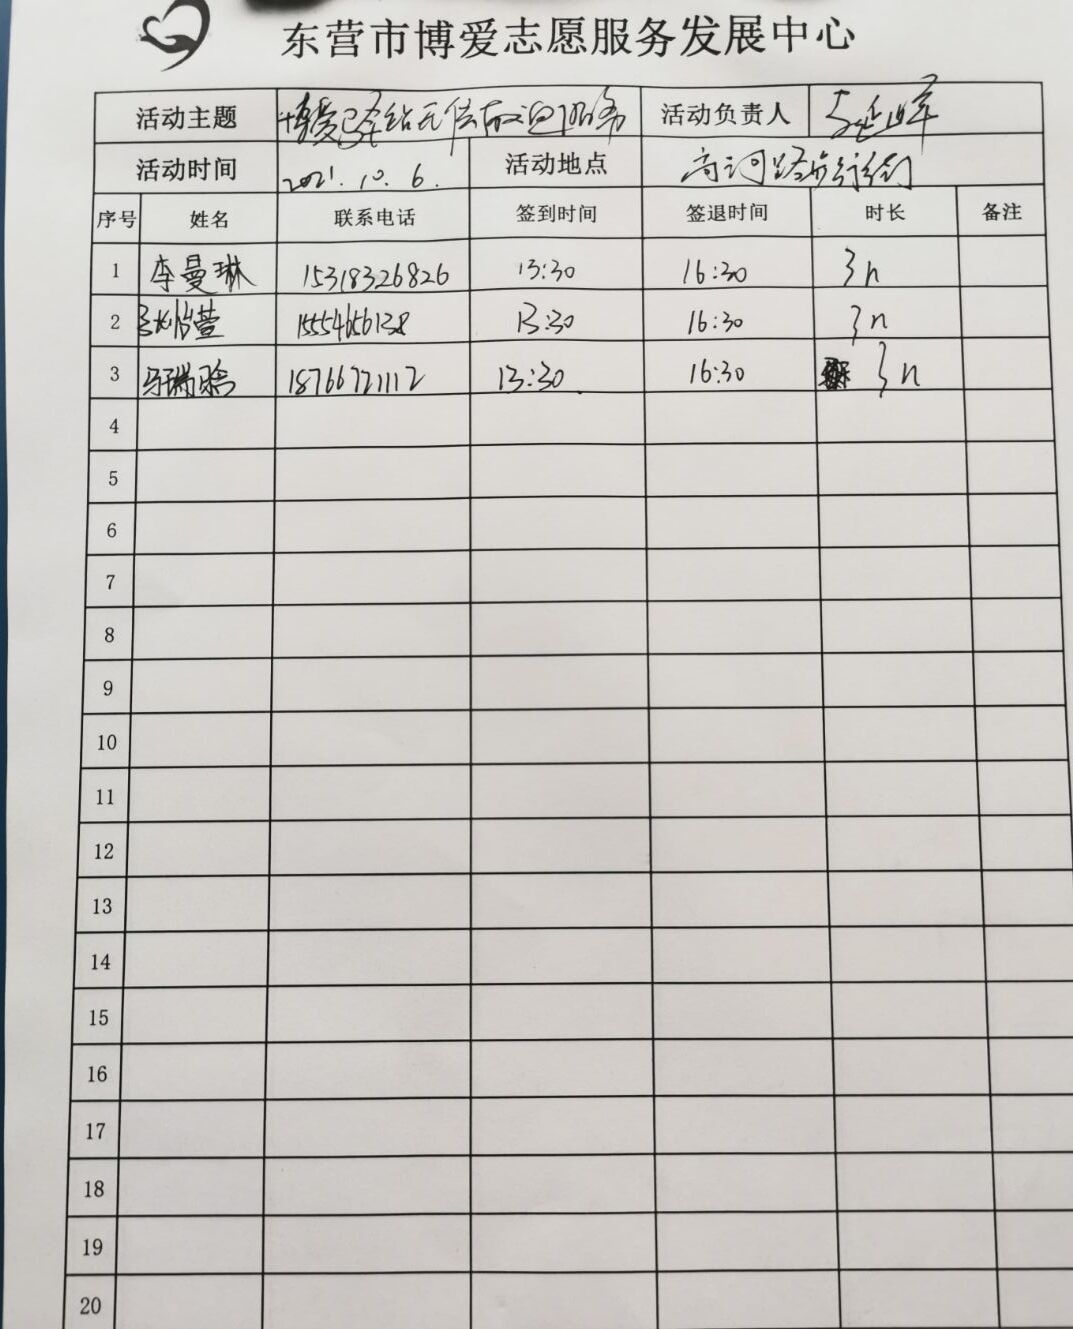 东营市博爱志愿服务发展中心
活动主题 博爱 无偿献血服务 活动负责人
活动时间 2021.10.6. 活动地点
序号 姓名 联系电话 签到时间 签退时间 时长 备注
1 李曼琳 15318326826 13:30 16:30 3h
2 15554656138 13:30 16:30 3h
3 马瑞晗 18766721112 13:30 16:30 3h
4
5
6
7
8
9
10
11
12
13
14
15
16
17
18
19
20